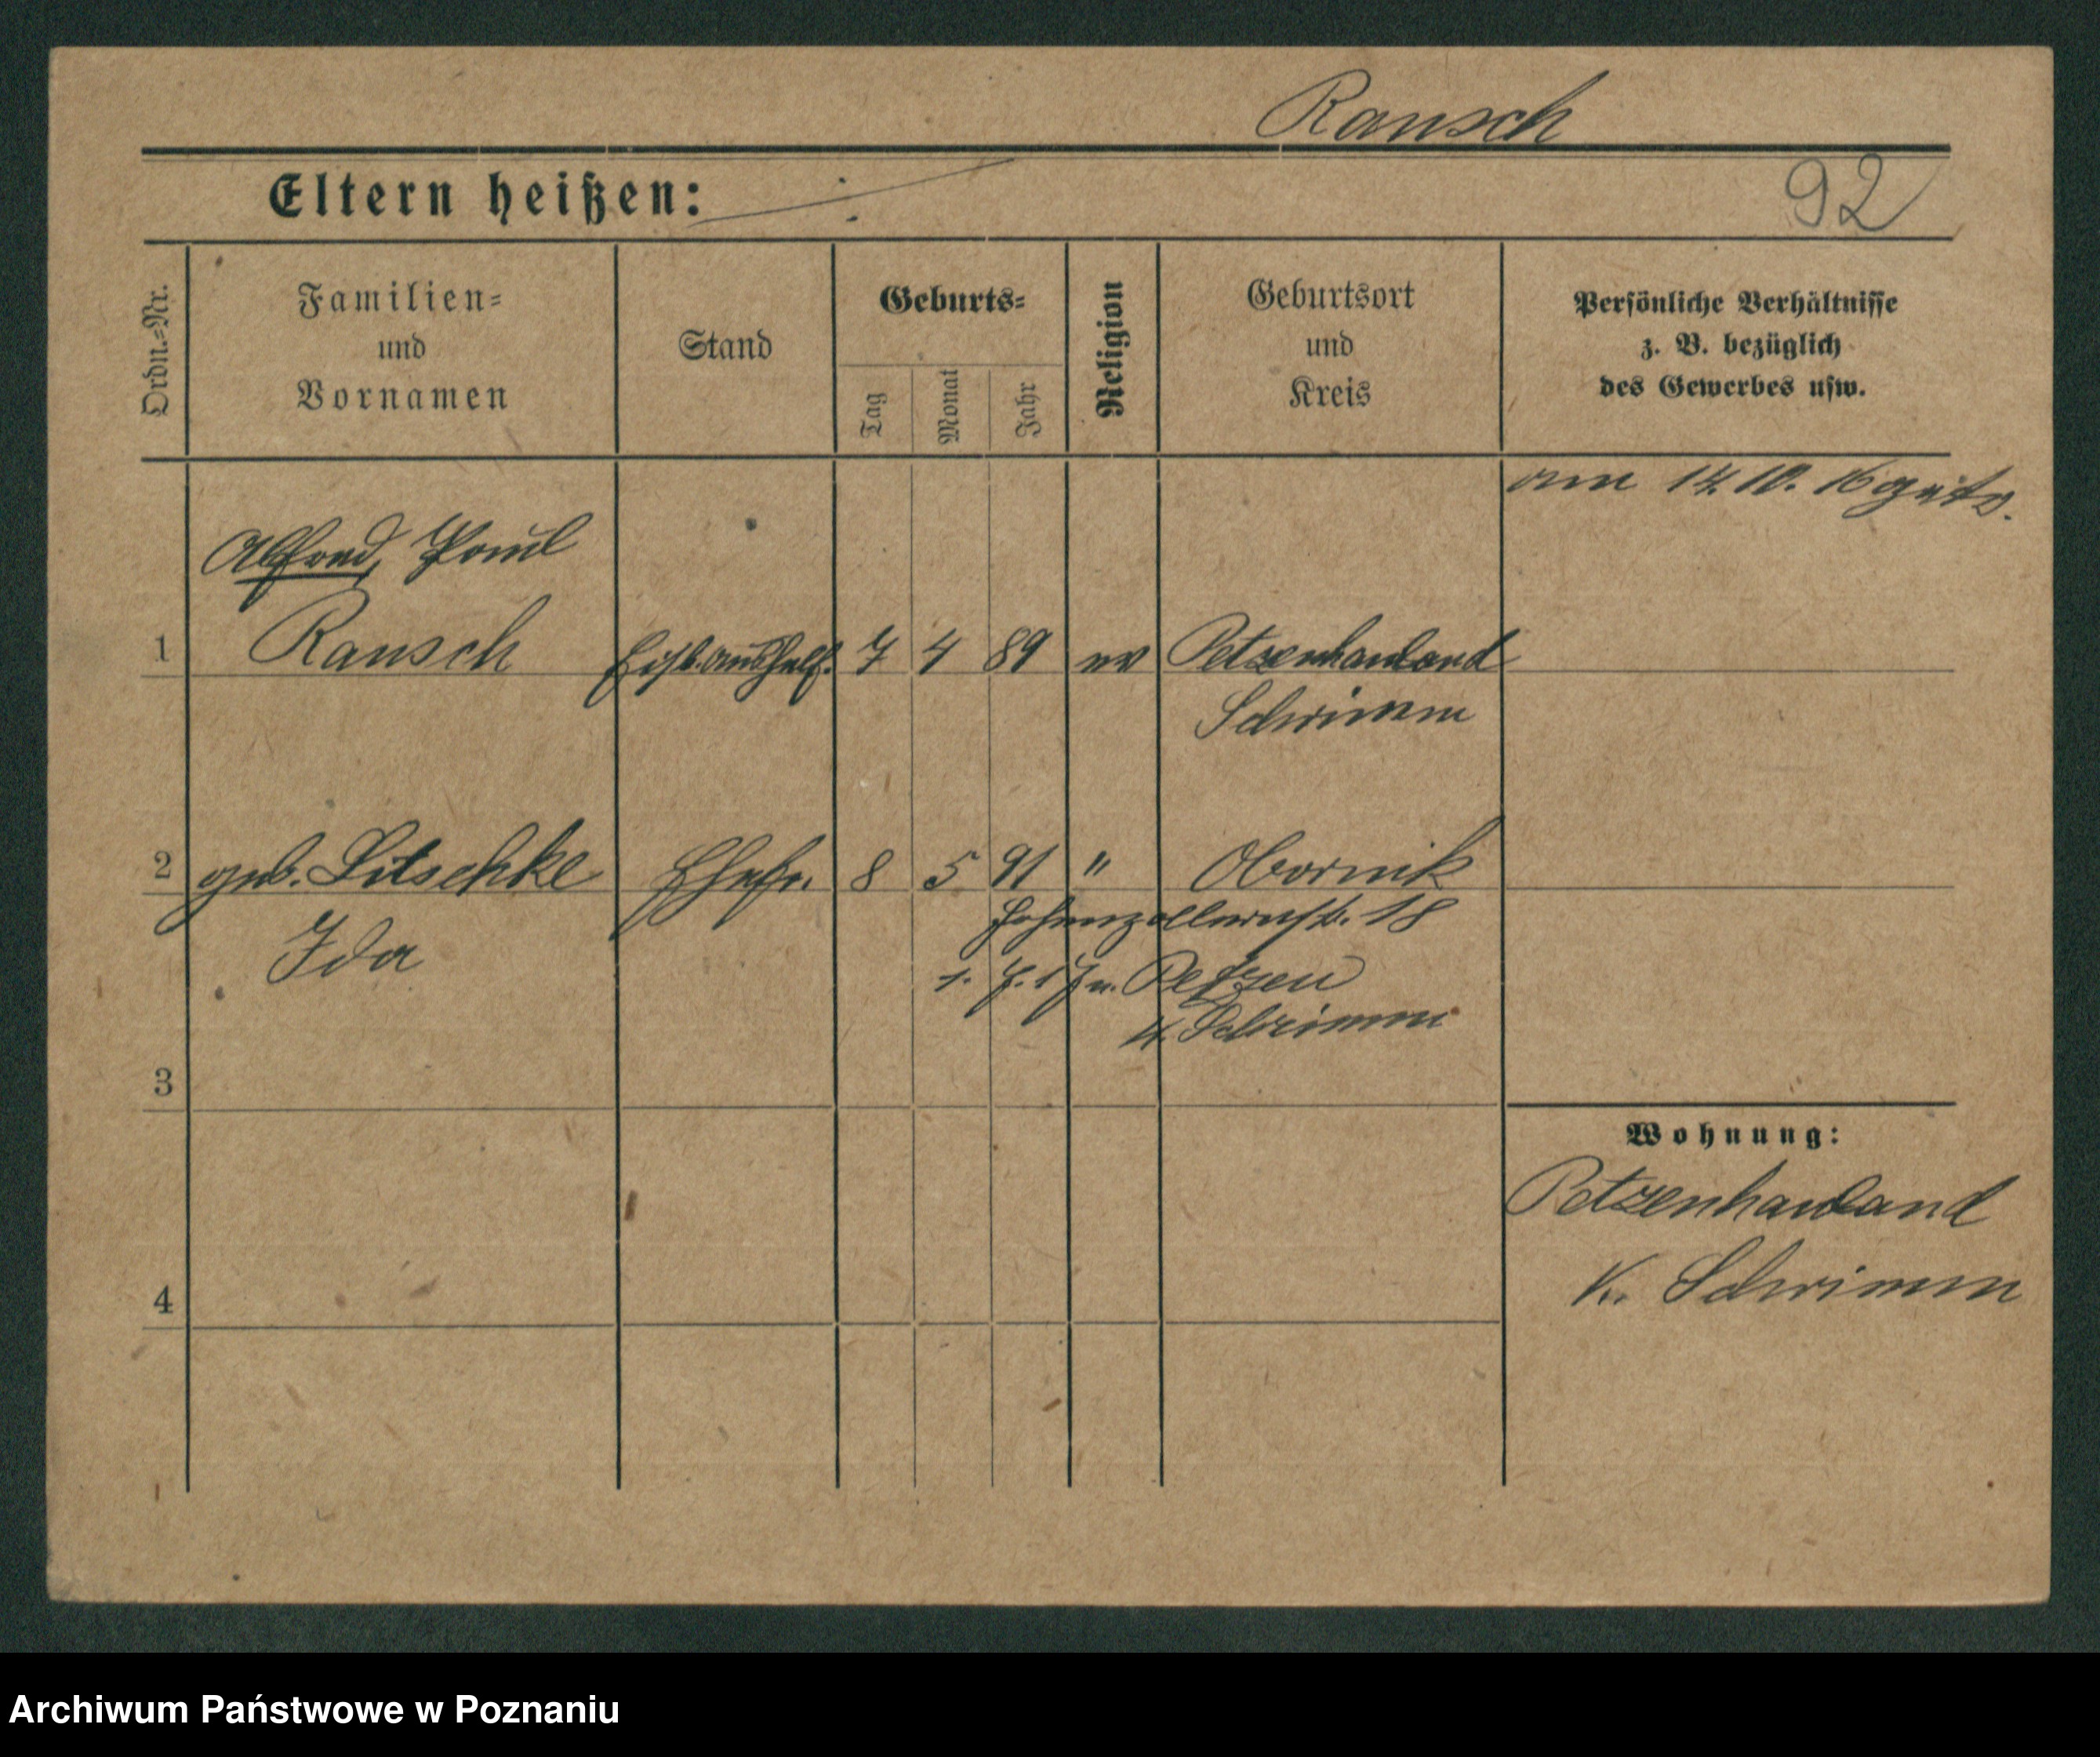 Rausch
Eltern heißen: ⁒
92
Ordn.-Nr.
Familien-
und
Vornamen
Stand
Geburts-
Tag
Monat
Jahr
Religion
Geburtsort
und
Kreis
Persönliche Verhältnisse
z. B. bezüglich
des Gewerbes usw.
am 14.10.16
Alfred, Paul
1 Rausch Eisb.aushelf. 7 4 89 ev Petzenhauland
Schrimm
2 geb. Litschke Ehefr. 8 5 91 " Obornik
Ida
Hohenzollernstr. 18
1. 7. 17 n. Petzen
Schrimm
3
4
Wohnung:
Petzenhauland
K. Schrimm
Archiwum Państwowe w Poznaniu